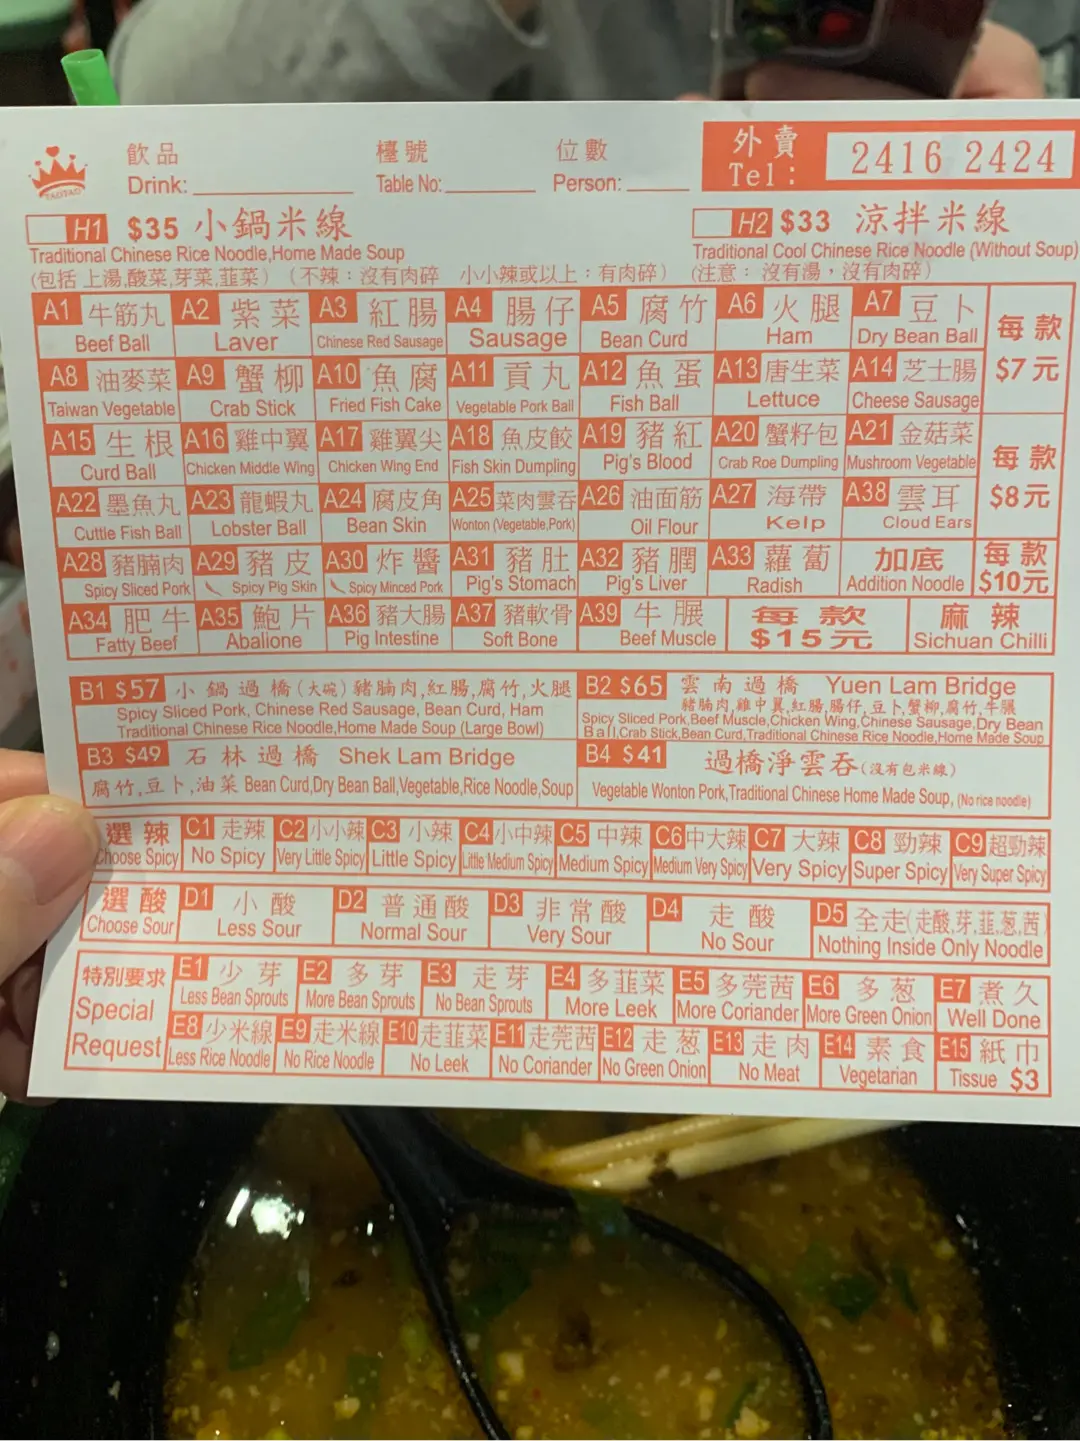 飲品 檯號 位數 外賣
TAOTAO Drink: Table No: Person: Tel: 2416 2424
H1 $35 小鍋米線 H2 $33 涼拌米線
Traditional Chinese Rice Noodle,Home Made Soup Traditional Cool Chinese Rice Noodle (Without Soup)
(包括 上湯,酸菜,芽菜,韮菜) (不辣：沒有肉碎 小小辣或以上：有肉碎) (注意：沒有湯，沒有肉碎)
A1 牛筋丸 A2 紫菜 A3 紅腸 A4 腸仔 A5 腐竹 A6 火腿 A7 豆卜 每款
Beef Ball Laver Chinese Red Sausage Sausage Bean Curd Ham Dry Bean Ball
A8 油麥菜 A9 蟹柳 A10 魚腐 A11 貢丸 A12 魚蛋 A13 唐生菜 A14 芝士腸 $7元
Taiwan Vegetable Crab Stick Fried Fish Cake Vegetable Pork Ball Fish Ball Lettuce Cheese Sausage
A15 生根 A16 雞中翼 A17 雞翼尖 A18 魚皮餃 A19 豬紅 A20 蟹籽包 A21 金菇菜 每款
Curd Ball Chicken Middle Wing Chicken Wing End Fish Skin Dumpling Pig's Blood Crab Roe Dumpling Mushroom Vegetable
A22 墨魚丸 A23 龍蝦丸 A24 腐皮角 A25 菜肉雲吞 A26 油面筋 A27 海帶 A38 雲耳 $8元
Cuttle Fish Ball Lobster Ball Bean Skin Wonton (Vegetable,Pork) Oil Flour Kelp Cloud Ears
A28 豬腩肉 A29 豬皮 A30 炸醬 A31 豬肚 A32 豬膶 A33 蘿蔔 加底 每款
Spicy Sliced Pork Spicy Pig Skin Spicy Minced Pork Pig's Stomach Pig's Liver Radish Addition Noodle $10元
A34 肥牛 A35 鮑片 A36 豬大腸 A37 豬軟骨 A39 牛𦟌 每款 麻辣
Fatty Beef Abalione Pig Intestine Soft Bone Beef Muscle $15元 Sichuan Chilli
B1 $57 小鍋過橋(大碗)豬腩肉,紅腸,腐竹,火腿 B2 $65 雲南過橋 Yuen Lam Bridge
豬腩肉,雞中翼,紅腸,腸仔,豆卜,蟹柳,腐竹,牛𦟌
Spicy Sliced Pork, Chinese Red Sausage, Bean Curd, Ham Spicy Sliced Pork,Beef Muscle,Chicken Wing,Chinese Sausage,Dry Bean
Traditional Chinese Rice Noodle,Home Made Soup (Large Bowl) Ball,Crab Stick,Bean Curd,Traditional Chinese Rice Noodle,Home Made Soup
B3 $49 石林過橋 Shek Lam Bridge B4 $41 過橋淨雲吞(沒有包米線)
腐竹,豆卜,油菜 Bean Curd,Dry Bean Ball,Vegetable,Rice Noodle,Soup Vegetable Wonton Pork,Traditional Chinese Home Made Soup, (No rice noodle)
選辣 C1 走辣 C2 小小辣 C3 小辣 C4 小中辣 C5 中辣 C6 中大辣 C7 大辣 C8 勁辣 C9 超勁辣
Choose Spicy No Spicy Very Little Spicy Little Spicy Little Medium Spicy Medium Spicy Medium Very Spicy Very Spicy Super Spicy Very Super Spicy
選酸 D1 小酸 D2 普通酸 D3 非常酸 D4 走酸 D5 全走(走酸,芽,韮,葱,茜)
Choose Sour Less Sour Normal Sour Very Sour No Sour Nothing Inside Only Noodle
特別要求 E1 少芽 E2 多芽 E3 走芽 E4 多韮菜 E5 多莞茜 E6 多葱 E7 煮久
Special Less Bean Sprouts More Bean Sprouts No Bean Sprouts More Leek More Coriander More Green Onion Well Done
Request E8 少米線 E9 走米線 E10 走韮菜 E11 走莞茜 E12 走葱 E13 走肉 E14 素食 E15 紙巾
Less Rice Noodle No Rice Noodle No Leek No Coriander No Green Onion No Meat Vegetarian Tissue $3